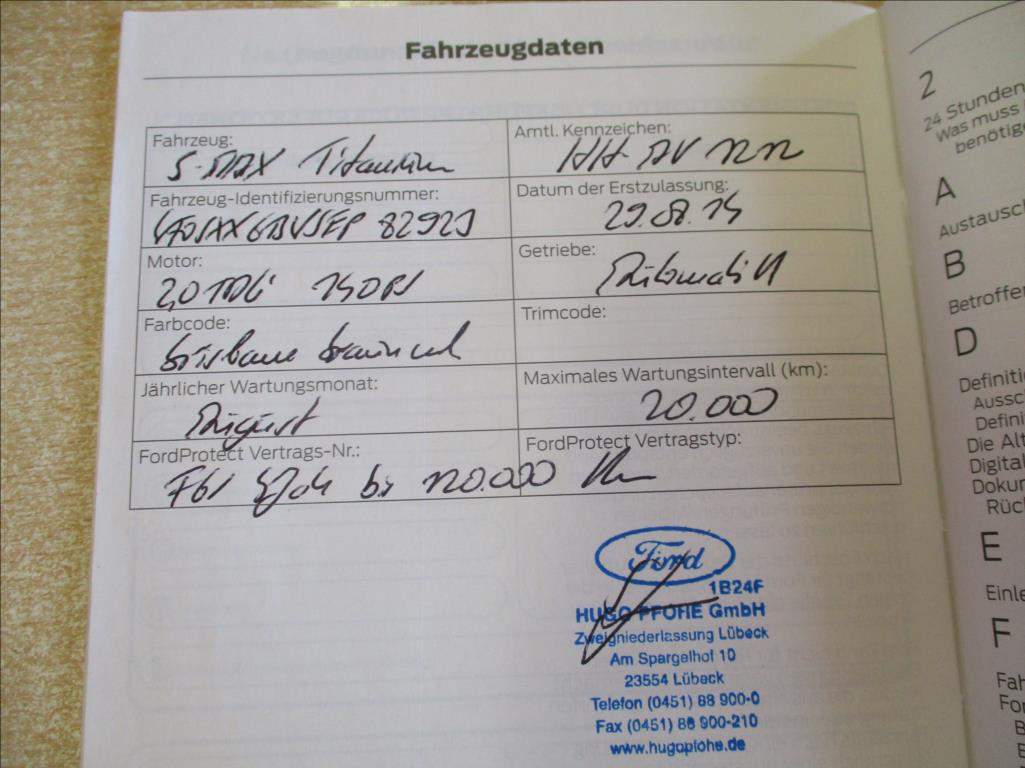 Fahrzeugdaten
Fahrzeug:
S-MAX Titanium
Amtl. Kennzeichen:
HH
Fahrzeug-Identifizierungsnummer:
82929
Datum der Erstzulassung:
29.08.14
Motor:
2,0 TDCi 140 PS
Getriebe:
Automatik
Farbcode:
brisbane braun met
Trimcode:
Jährlicher Wartungsmonat:
August
Maximales Wartungsintervall (km):
20.000
FordProtect Vertrags-Nr.:
FordProtect Vertragstyp:
bis 120.000 Km
Ford
1B24F
HUGO PFOHE GmbH
Zweigniederlassung Lübeck
Am Spargelhof 10
23554 Lübeck
Telefon (0451) 88 900-0
Fax (0451) 88 900-210
www.hugopfohe.de
2
24 Stunden
Was muss
benötig
A
Austausch
B
Betroffe
D
Definiti
Aussc
Defini
Die Alt
Digital
Dokun
Rüc
E
Einle
F
Fah
For
B